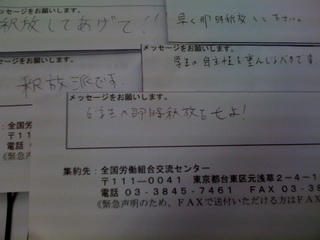 釈放してあげて!!
早く即時釈放して下さい。
メッセージをお願いします。
釈放派です。
メッセージをお願いします。
学生の自主性を重んじるべきです。
メッセージをお願いします。
学生の即時釈放をせよ!
集約先：全国労働組合交流センター
〒111―0041 東京都台東区元浅草2-4-1
電話 03-3845-7461 FAX 03-38
《緊急声明のため、FAXで送付いただける方はFAX
集約先：全国
〒11
電話
《緊急声